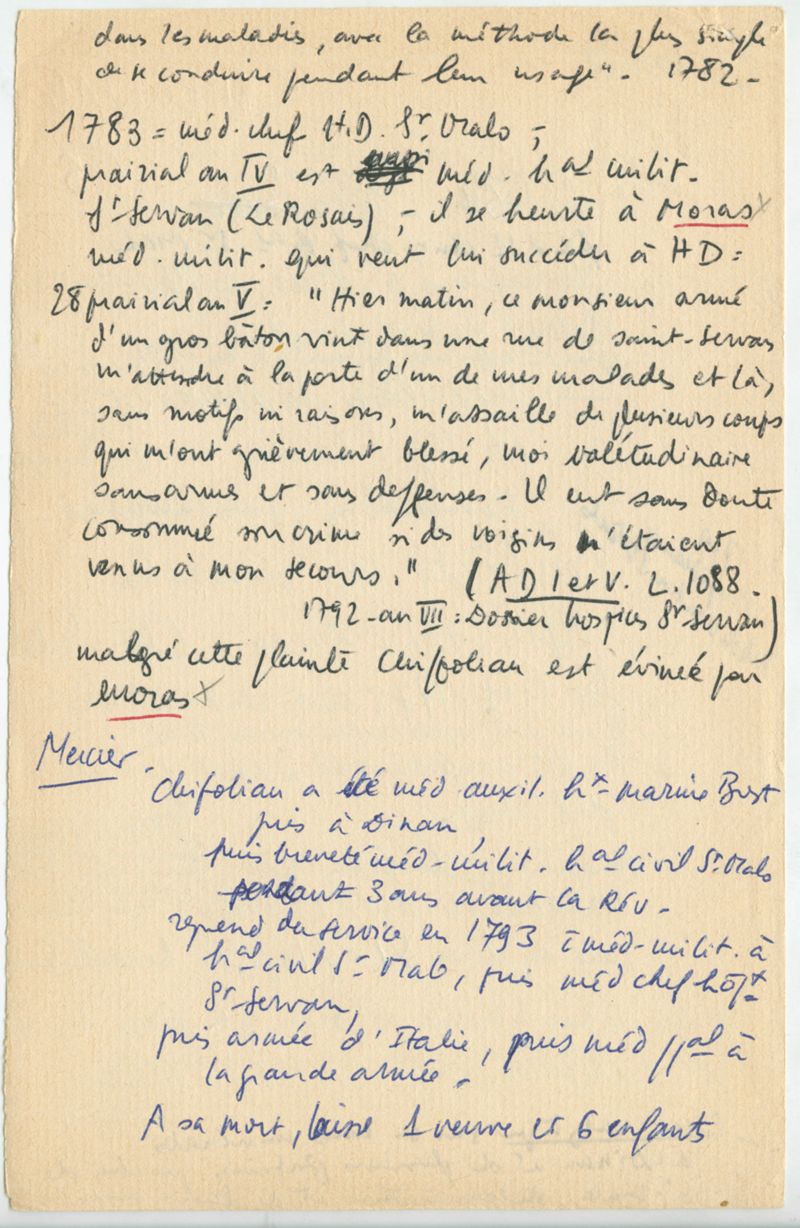 dans les maladies, avec la méthode la plus simple
de se conduire pendant leur usage". 1782 -
1783 = méd. chef H.D. St. Malo ; -
prairial an IV est aussi méd. hal milit.
St-Servan (Le Rosais) , - il se heurte à Moras x
méd. milit. qui veut lui succéder à HD :
28 prairial an V : "Hier matin, ce monsieur armé
d'un gros bâton vint dans une rue de saint-Servan
m'attendre à la porte d'un de mes malades et là,
sans motifs ni raisons, m'assaille de plusieurs coups
qui m'ont grièvement blessé, moi valétudinaire
sans armes et sans deffenses. Il eut sans doute
consommé son crime si des voisins n'étaient
venus à mon secours." (AD I et V. L. 1088.
1792 - an VII : Dossier hospices St-Servan)
malgré cette plainte Chiffolian est évincé par
Moras x
Mercier.
Chifolian a été méd auxil. hx - marine Brest
puis à Dinan,
puis breveté méd-milit. hal civil St Malo
pendant 3 ans avant la Rév.
reprend du service en 1793 méd-milit. à
hal civil St Malo, puis méd chef hôpx
St-Servan,
puis armée d'Italie, puis méd ppal à
la grande armée.
A sa mort, laisse 1 veuve et 6 enfants